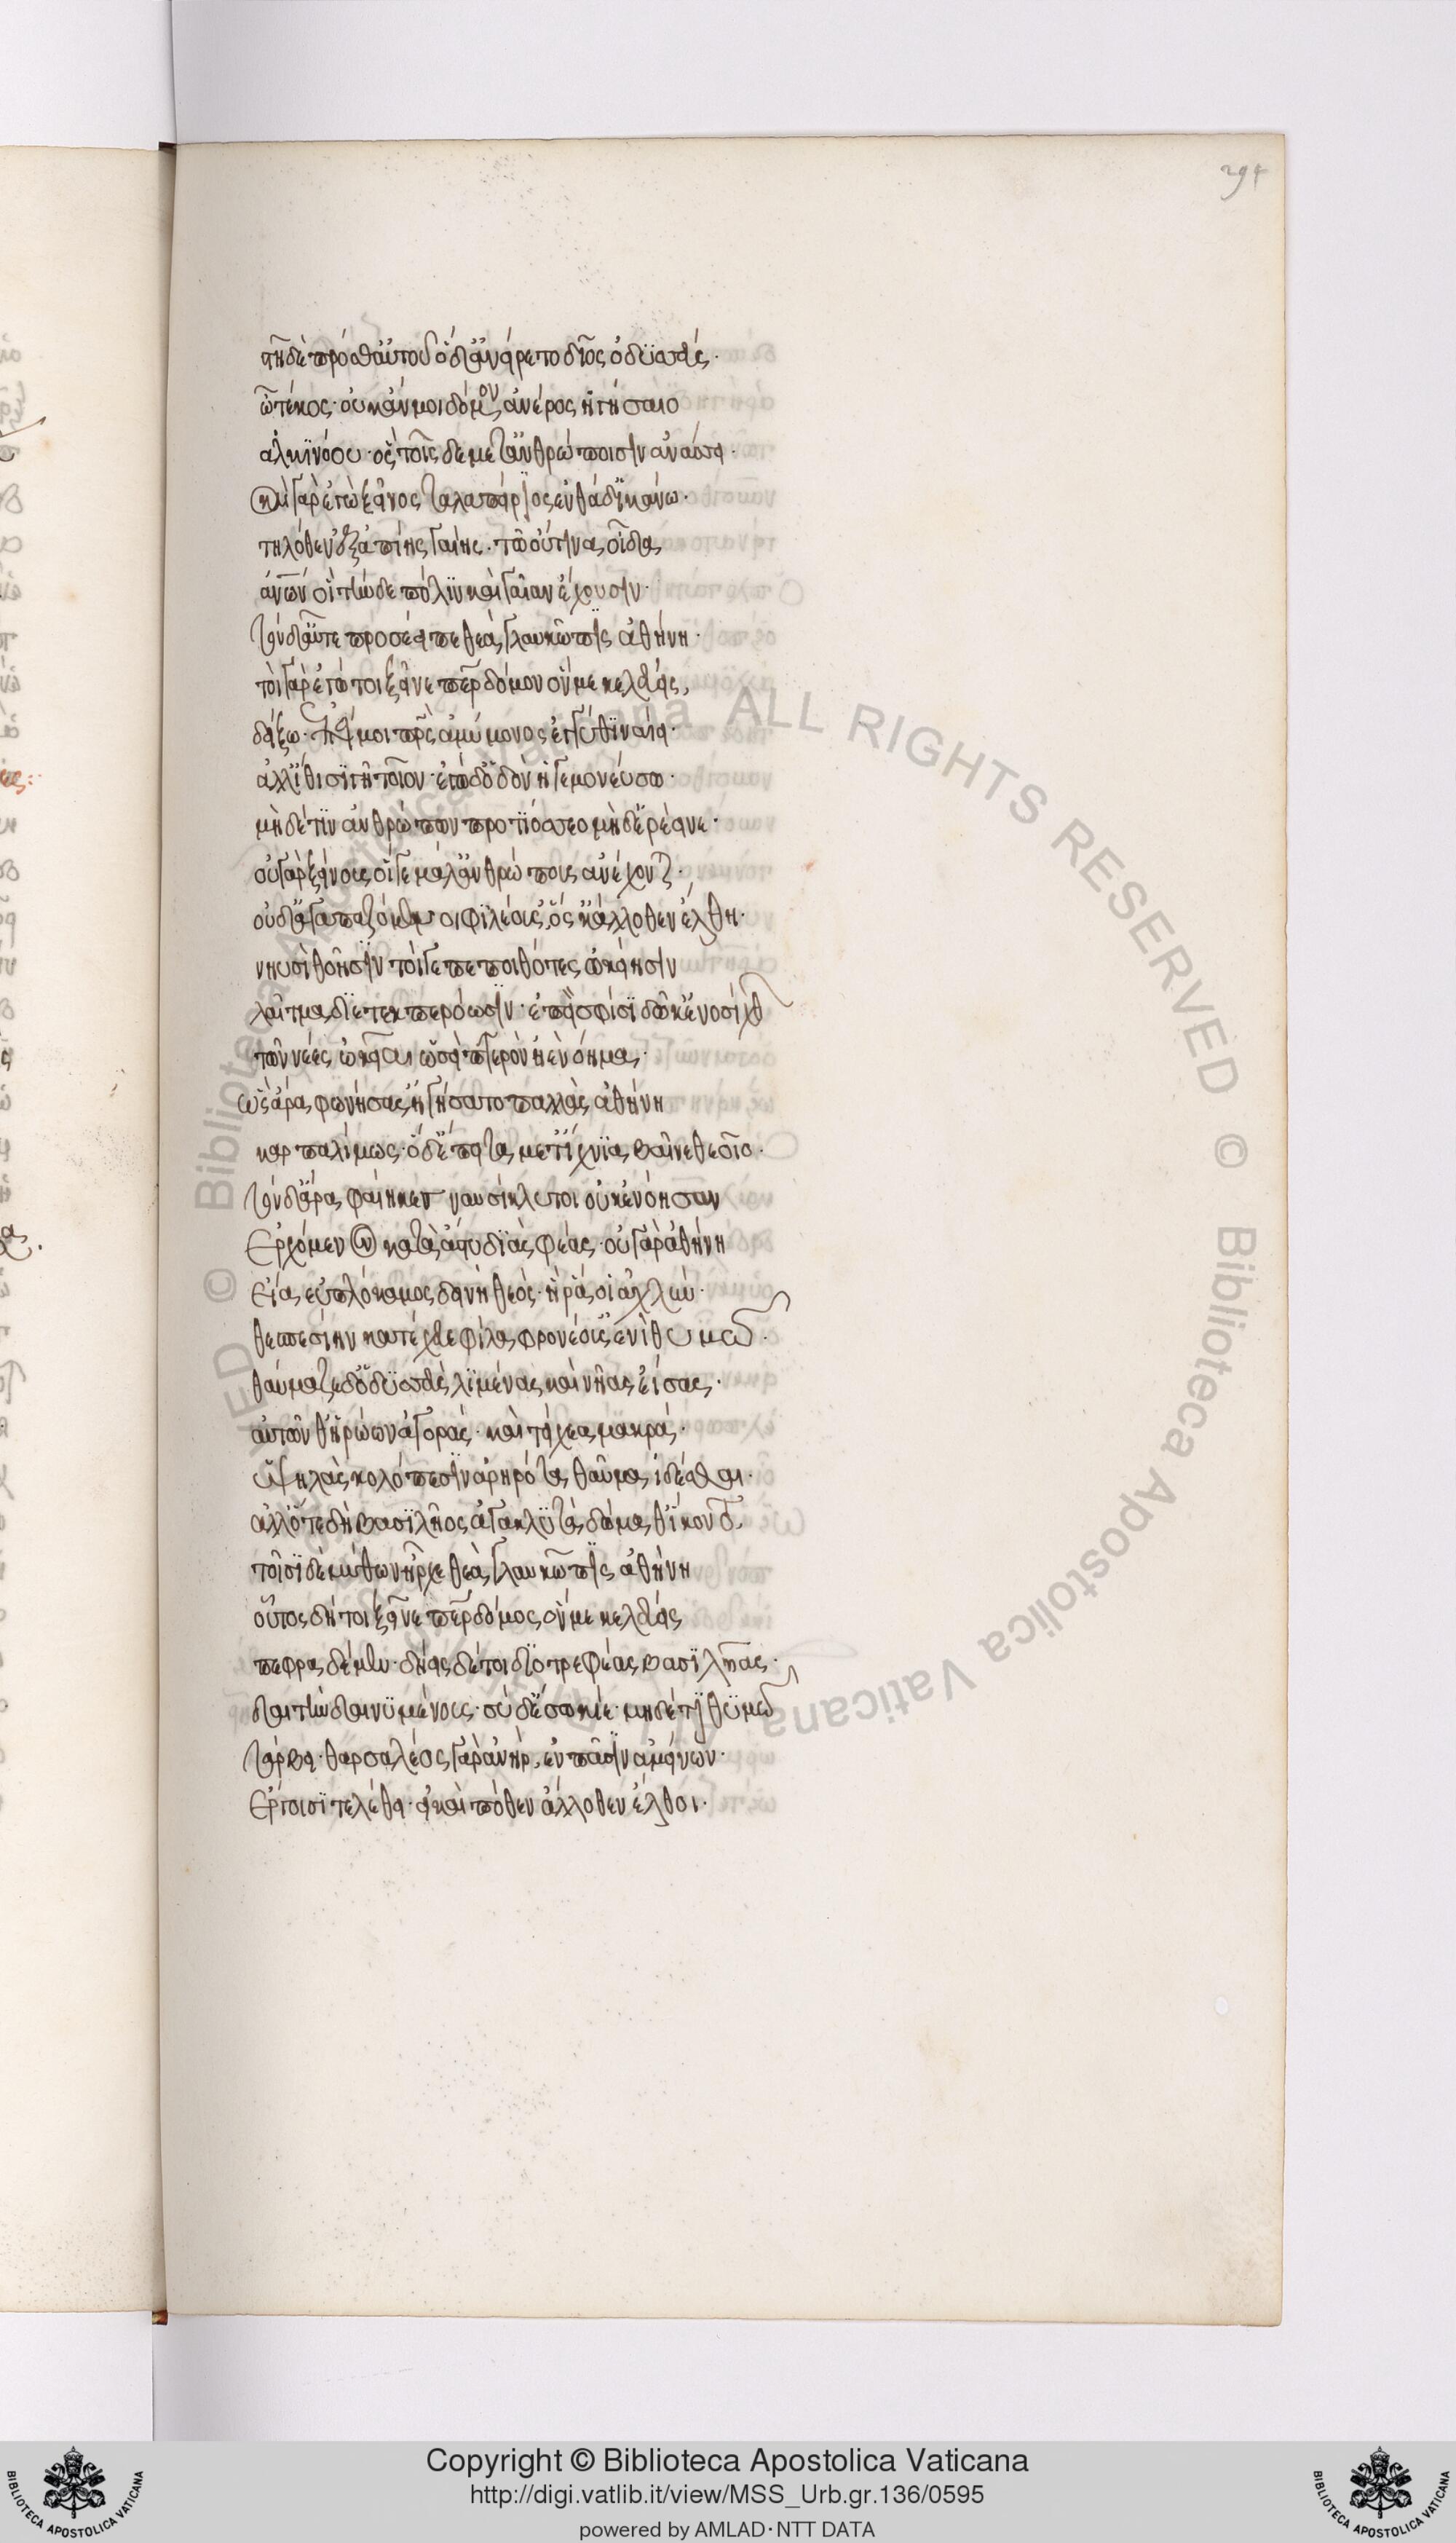 294
στῆ δὲ πρόσθ' αὐτοῦ ὁ δ' ἀνείρετο δῖος ὀδυσσεύς·
ὦ τέκος· οὐκ ἄν μοι δόμον ἀνέρος ἡγήσαιο
ἀλκινόου· ὃς τοῖς δε μετ' ἀνθρώποισιν ἀνάσσει·
καὶ γὰρ ἐγὼ ξεῖνος ταλαπείριος ἐνθάδ' ἱκάνω·
τηλόθεν ἐξ ἀπίης γαίης· τῶ οὔτινα οἶδα
ἀνῶν οἳ τήνδε πόλιν καὶ γαῖαν ἔχουσιν·
τὸν δ' αὖτε προσέειπε θεὰ γλαυκῶπις ἀθήνη·
τοὶ γὰρ ἐγώ τοι ξεῖνε πάτερ δόμον ὅν με κελεύεις,
δείξω· ἐπεί μοι πατρὸς ἀμύμονος ἐγγύθι ναίει·
ἀλλ' ἴθι σιγῆ τοῖον· ἐγὼ δ' ὁδὸν ἡγεμονεύσω·
μὴ δέ τιν' ἀνθρώπων προτιόσσεο μὴ δ' ἐρέεινε·
οὐ γὰρ ξείνους οἵ γε μάλ' ἀνθρώπους ἀνέχονται·
οὐδ' ἀγαπαζόμενοι φιλέουσ', ὅς κ' ἄλλοθεν ἔλθη·
νηυσὶ θοῆσιν τοί γε πεποιθότες ὠκείησιν
λαῖτμα διεκπερόωσιν· ἐπεί σφισι δῶκ' ἐνοσίχθων
τῶν νέες ὠκεῖαι ὡσεὶ πτερὸν ἠὲ νόημα·
ὣς ἄρα φωνήσας' ἡγήσατο παλλὰς ἀθήνη
καρπαλίμως· ὁ δ' ἔπειτα μετ' ἴχνια βαῖνε θεοῖο·
τὸν δ' ἄρα φαίηκες ναυσίκλυτοι οὐκ ἐνόησαν
Ἐρχόμενον κατὰ ἄστυ διὰ σφέας· οὐ γὰρ ἀθήνη
Εἴα ἐυπλόκαμος δεινὴ θεὸς· ἥ ῥά οἱ ἀχλὺν·
θεσπεσίην κατέχευε φίλα φρονέουσ' ἐνὶ θυμῶ·
θαύμαζε δ' ὀδυσσεὺς λιμένας καὶ νῆας ἐΐσας·
αὐτῶν θ' ἡρώων ἀγοράς· καὶ τείχεα μακρά·
ὑψηλὰ σκολόπεσιν ἀρηρότα θαῦμα ἰδέσθαι·
ἀλλ' ὅτε δὴ βασιλῆος ἀγακλυτὰ δώμαθ' ἵκοντο.
τοῖσι δὲ μύθων ἦρχε θεὰ γλαυκῶπις ἀθήνη
οὗτος δή τοι ξεῖνε πάτερ δόμος ὅν με κελεύεις
πεφραδέμεν· δήεις δέ τοι διοτρεφέας βασιλῆας·
δαίτην δαινυμένους· σὺ δ' ἔσω κίε· μηδέ τι θυμῶ
τάρβει· θαρσαλέος γὰρ ἀνὴρ, ἐν πᾶσιν ἀμείνων·
Ἔργοισι τελέθει· εἰ καὶ πόθεν ἄλλοθεν ἔλθοι·
© Biblioteca Apostolica Vaticana ALL RIGHTS RESERVED © Biblioteca Apostolica Vaticana
Copyright © Biblioteca Apostolica Vaticana
http://digi.vatlib.it/view/MSS_Urb.gr.136/0595
powered by AMLAD·NTT DATA
BIBLIOTECA APOSTOLICA VATICANA
BIBLIOTECA APOSTOLICA VATICANA